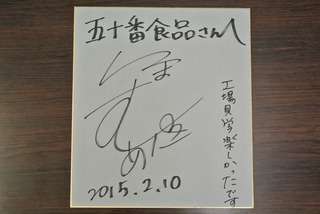 五十番食品さんへ
工場見学楽しかったです
2015.2.10